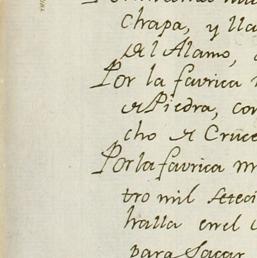 chapa, y lla
del Alamo,
Por la favrica
de Piedra, con
cho de Cruce
Por la favrica m
tro mil seteci
halla en el
para Sacar